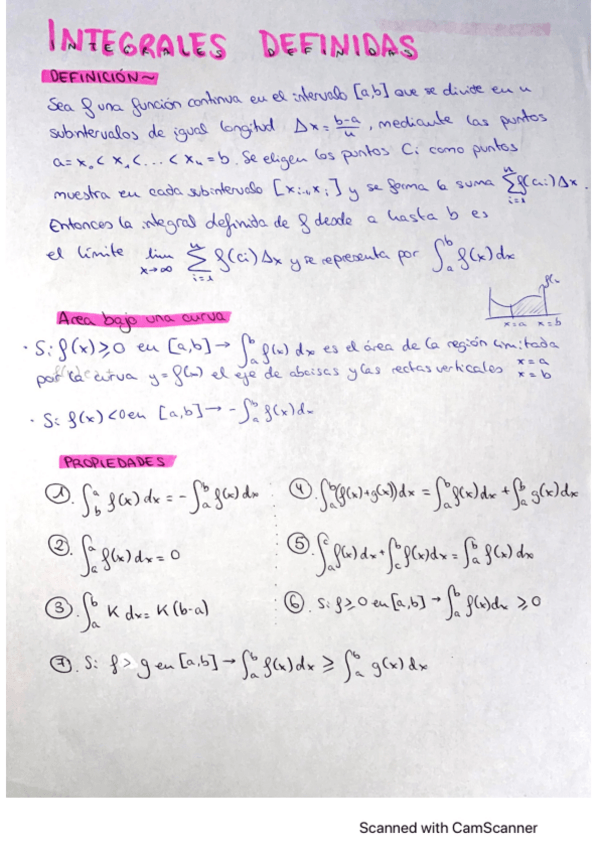 INTEGRALES DEFINIDAS
DEFINICIÓN~
Sea f una función continua en el intervalo [a,b] que se divide en n
subintervalos de igual longitud Δx = b-a/n, mediante las puntos
a = x₀ < x₁ < ... < xₙ = b. Se eligen los puntos Ci como puntos
muestra en cada subintervalo [xᵢ₋₁, xᵢ] y se forma la suma Σⁿᵢ₌₁ f(ci) Δx.
Entonces la integral definida de f desde a hasta b es
el límite lim x→∞ Σⁿᵢ₌₁ f(ci) Δx y se representa por ∫ₐᵇ f(x) dx
Area bajo una curva
x=a x=b
· Si f(x) ≥ 0 en [a,b] → ∫ₐᵇ f(x) dx es el área de la región limitada
por la curva y = f(x) el eje de abcisas y las rectas verticales x=a x=b
· Si f(x) < 0 en [a,b] → -∫ₐᵇ f(x) dx
PROPIEDADES
①. ∫_b^a f(x) dx = -∫_a^b f(x) dx
②. ∫_a^a f(x) dx = 0
③. ∫_a^b K dx = K(b-a)
④. ∫_a^b (f(x)+g(x)) dx = ∫_a^b f(x) dx + ∫_a^b g(x) dx
⑤. ∫_a^c f(x) dx + ∫_c^b f(x) dx = ∫_a^b f(x) dx
⑥. Si f ≥ 0 en [a,b] → ∫_a^b f(x) dx ≥ 0
⑦. Si f > g en [a,b] → ∫_a^b f(x) dx ≥ ∫_a^b g(x) dx
Scanned with CamScanner